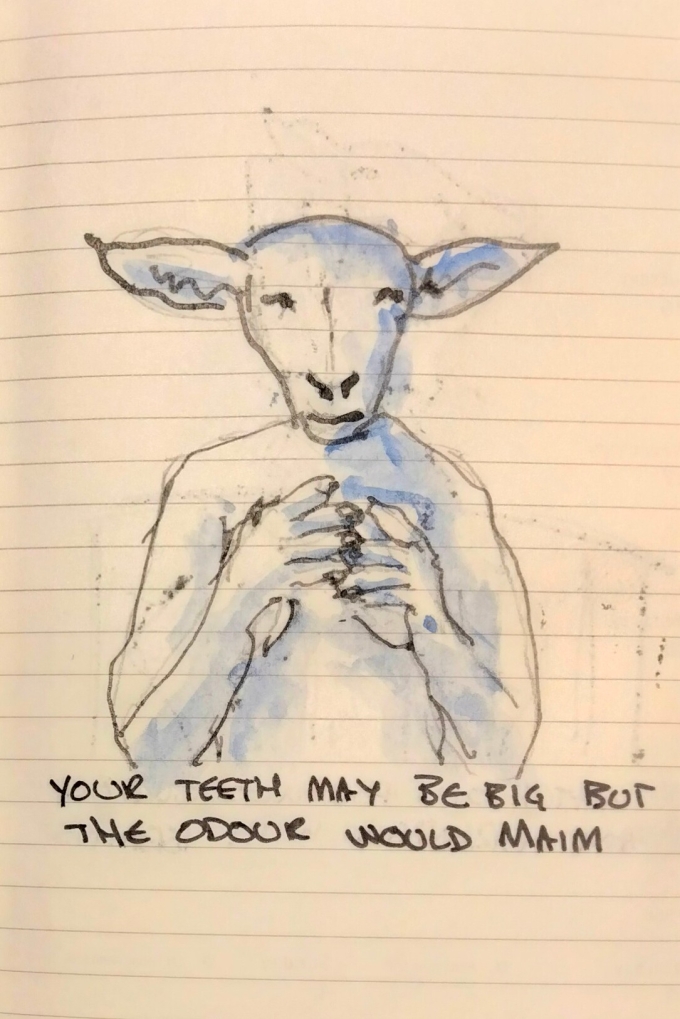 YOUR TEETH MAY BE BIG BUT
THE ODOUR WOULD MAIM